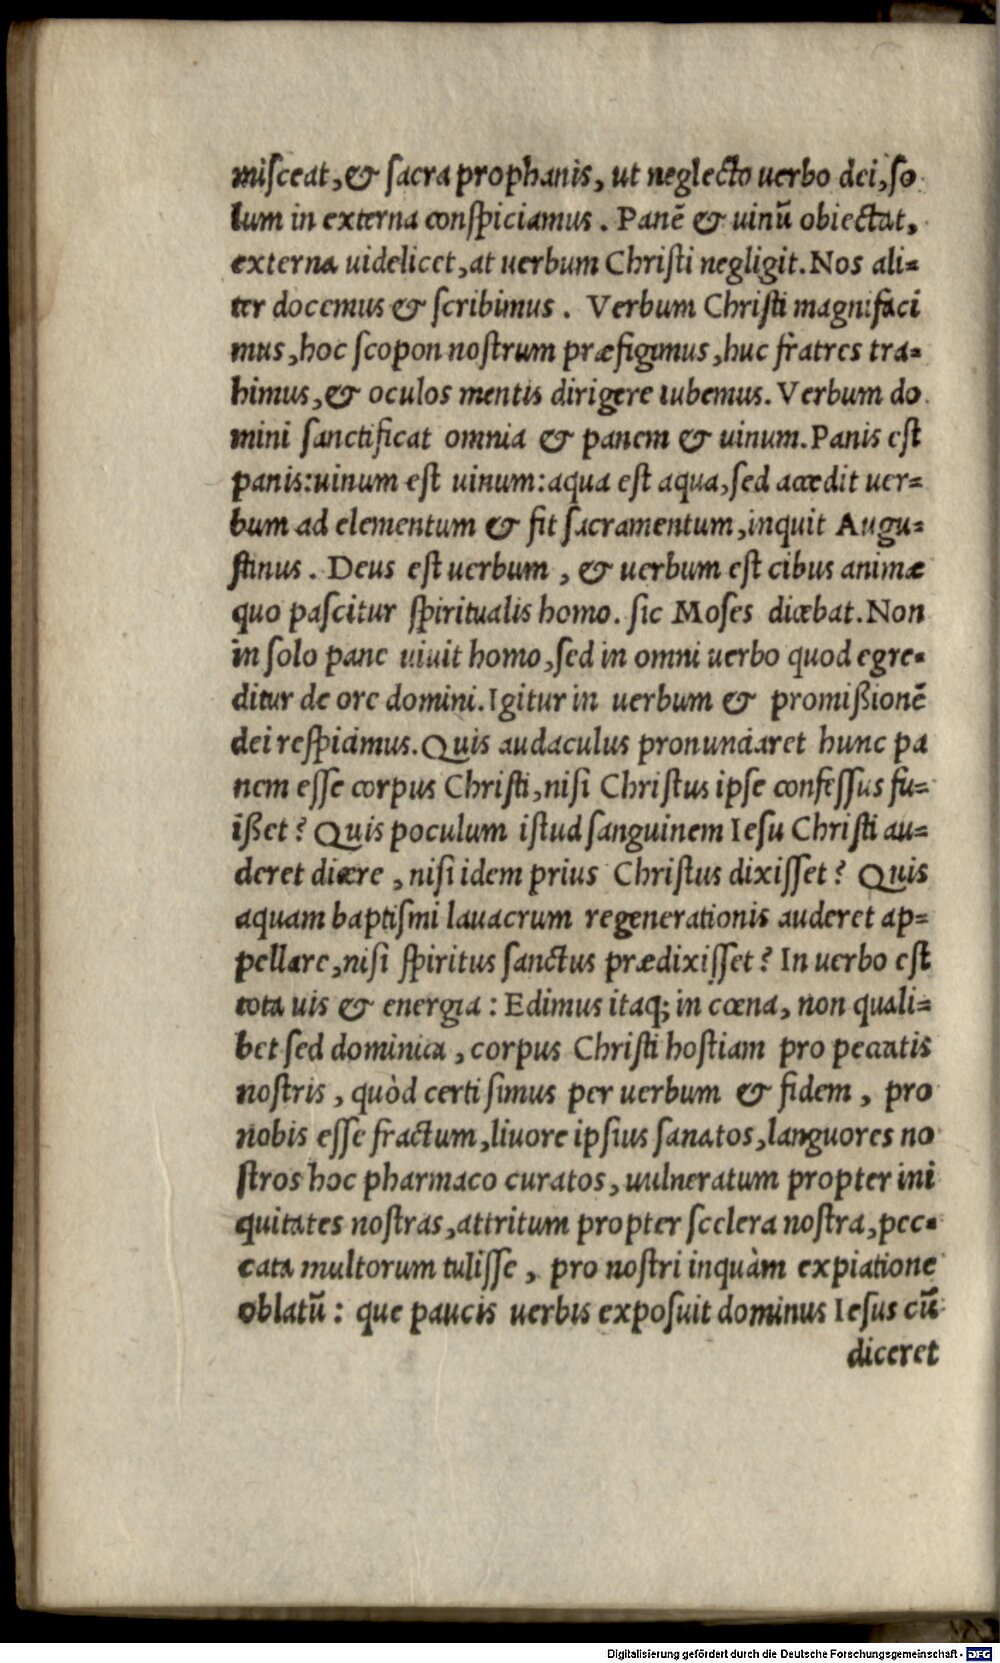 miſceat, & ſacra prophanis, ut neglecto uerbo dei, ſo
lum in externa conſpiciamus. Panē & uinū obiectat,
externa uidelicet, at uerbum Chriſti negligit. Nos ali-
ter docemus & ſcribimus. Verbum Chriſti magnifaci
mus, hoc ſcopon noſtrum præfigimus, huc fratres tra-
himus, & oculos mentis dirigere iubemus. Verbum do
mini ſanctificat omnia & panem & uinum. Panis eſt
panis: uinum eſt uinum: aqua eſt aqua, ſed accedit uer-
bum ad elementum & fit ſacramentum, inquit Augu-
ſtinus. Deus eſt uerbum, & uerbum eſt cibus animæ
quo paſcitur ſpiritualis homo. ſic Moſes dicebat. Non
in ſolo pane uiuit homo, ſed in omni uerbo quod egre-
ditur de ore domini. Igitur in uerbum & promißionē
dei reſpicimus. Quis audaculus pronunciaret hunc pa
nem eſſe corpus Chriſti, niſi Chriſtus ipſe confeſſus fu-
ißet? Quis poculum iſtud ſanguinem Ieſu Chriſti au-
deret dicere, niſi idem prius Chriſtus dixiſſet? Quis
aquam baptiſmi lauacrum regenerationis auderet ap-
pellare, niſi ſpiritus ſanctus prædixiſſet? In uerbo eſt
tota uis & energia: Edimus itaq; in cœna, non quali-
bet ſed dominica, corpus Chriſti hoſtiam pro peccatis
noſtris, quòd certi ſimus per uerbum & fidem, pro
nobis eſſe fractum, liuore ipſius ſanatos, languores no
ſtros hoc pharmaco curatos, uulneratum propter ini
quitates noſtras, attritum propter ſcelera noſtra, pec-
cata multorum tuliſſe, pro noſtri inquàm expiatione
oblatū: que paucis uerbis expoſuit dominus Ieſus cū
diceret
Digitalisierung gefördert durch die Deutsche Forschungsgemeinschaft - DFG